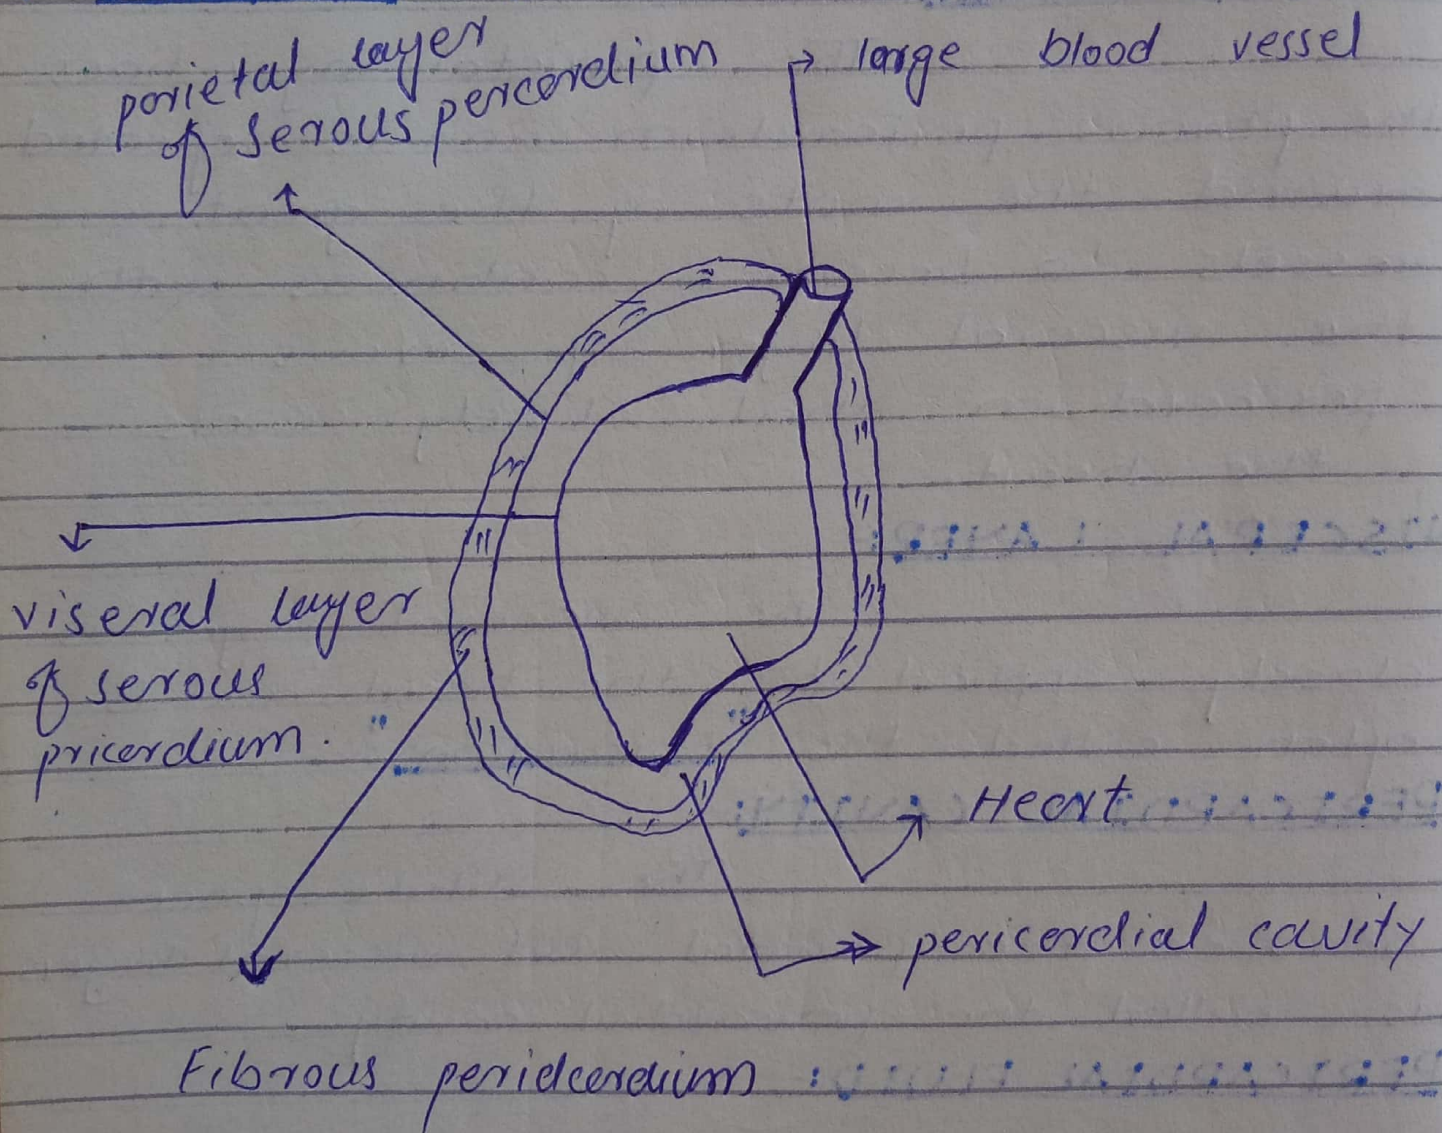 parietal layer
of serous percardium
large blood vessel
viseral layer
of serous
pricardium.
Heart
pericardial cavity
Fibrous peridcardium